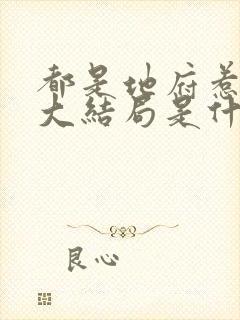 都是地府惹
大结局是什
良心